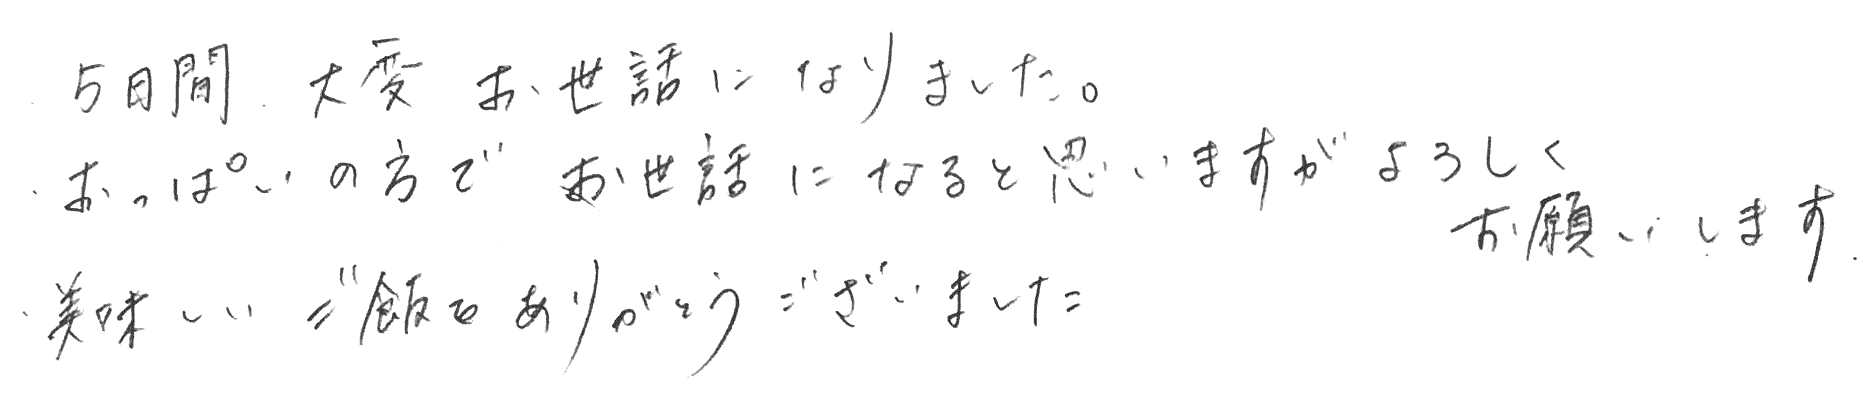 5日間 大変 お世話になりました。
おっぱいの方で お世話になると思いますがよろしく
お願いします
美味しい ご飯もありがとうございました